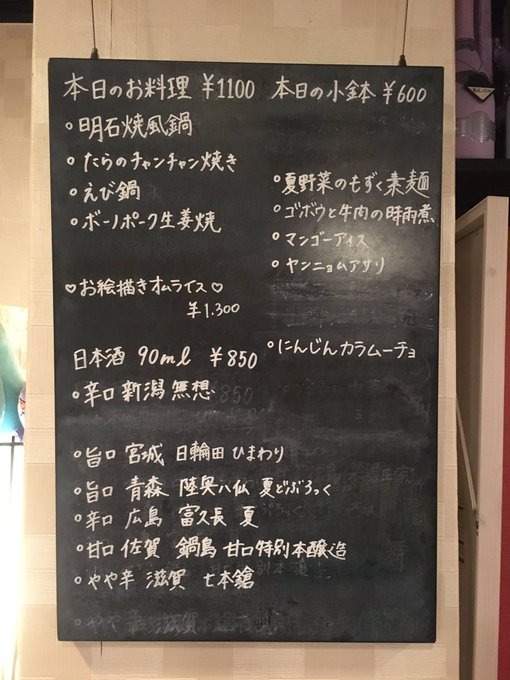 本日のお料理 ¥1100
○明石焼風鍋
○たらのチャンチャン焼き
○えび鍋
○ボーノポーク生姜焼
♡お絵描きオムライス♡
¥1.300
本日の小鉢 ¥600
○夏野菜のもずく素麺
○ゴボウと牛肉の時雨煮
○マンゴーアイス
○ヤンニョムアサリ
○にんじんカラムーチョ
日本酒 90ml ¥850
○辛口 新潟 無想
○旨口 宮城 日輪田 ひまわり
○旨口 青森 陸奥八仙 夏どぶろっく
○辛口 広島 富久長 夏
○甘口 佐賀 鍋島 甘口特別本醸造
○やや辛 滋賀 七本鎗